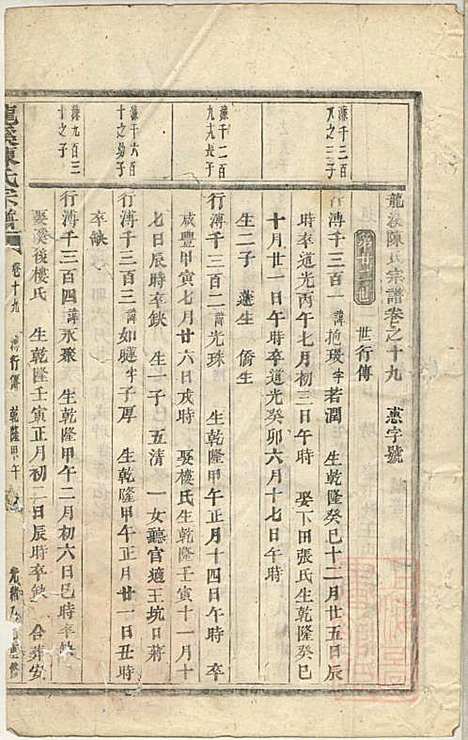 龍溪陳氏宗譜卷之十九 惠字號
世行傳
濂千三百
之三子
行溥千三百一 諱抱璞字若潤 生乾隆癸巳十二月廿五日辰
時卒道光丙午七月初三日午時 娶下田張氏生乾隆癸巳
十月廿一日午時卒道光癸卯六月十七日午時
生二子 遜生 僑生
濂千二百
九十六長子
行溥千三百二 諱光珠 生乾隆甲午正月十四日午時 卒
咸豐甲寅七月廿六日亥時 娶樓氏生乾隆壬寅十一月十
七日辰時卒缺 生一子 五清 一女聽官適王坑口蔣
濂千六百
十之幼子
行溥千三百三 諱如聰字子厚 生乾隆甲午正月廿一日丑時
卒缺
濂九百三
十之子
行溥千三百四 諱永聚 生乾隆甲午二月初六日巳時卒缺
娶溪後樓氏 生乾隆壬寅正月初一日辰時卒缺 合葬安
龍溪陳氏宗譜 卷十九 溥行傳 乾隆甲午 光緒